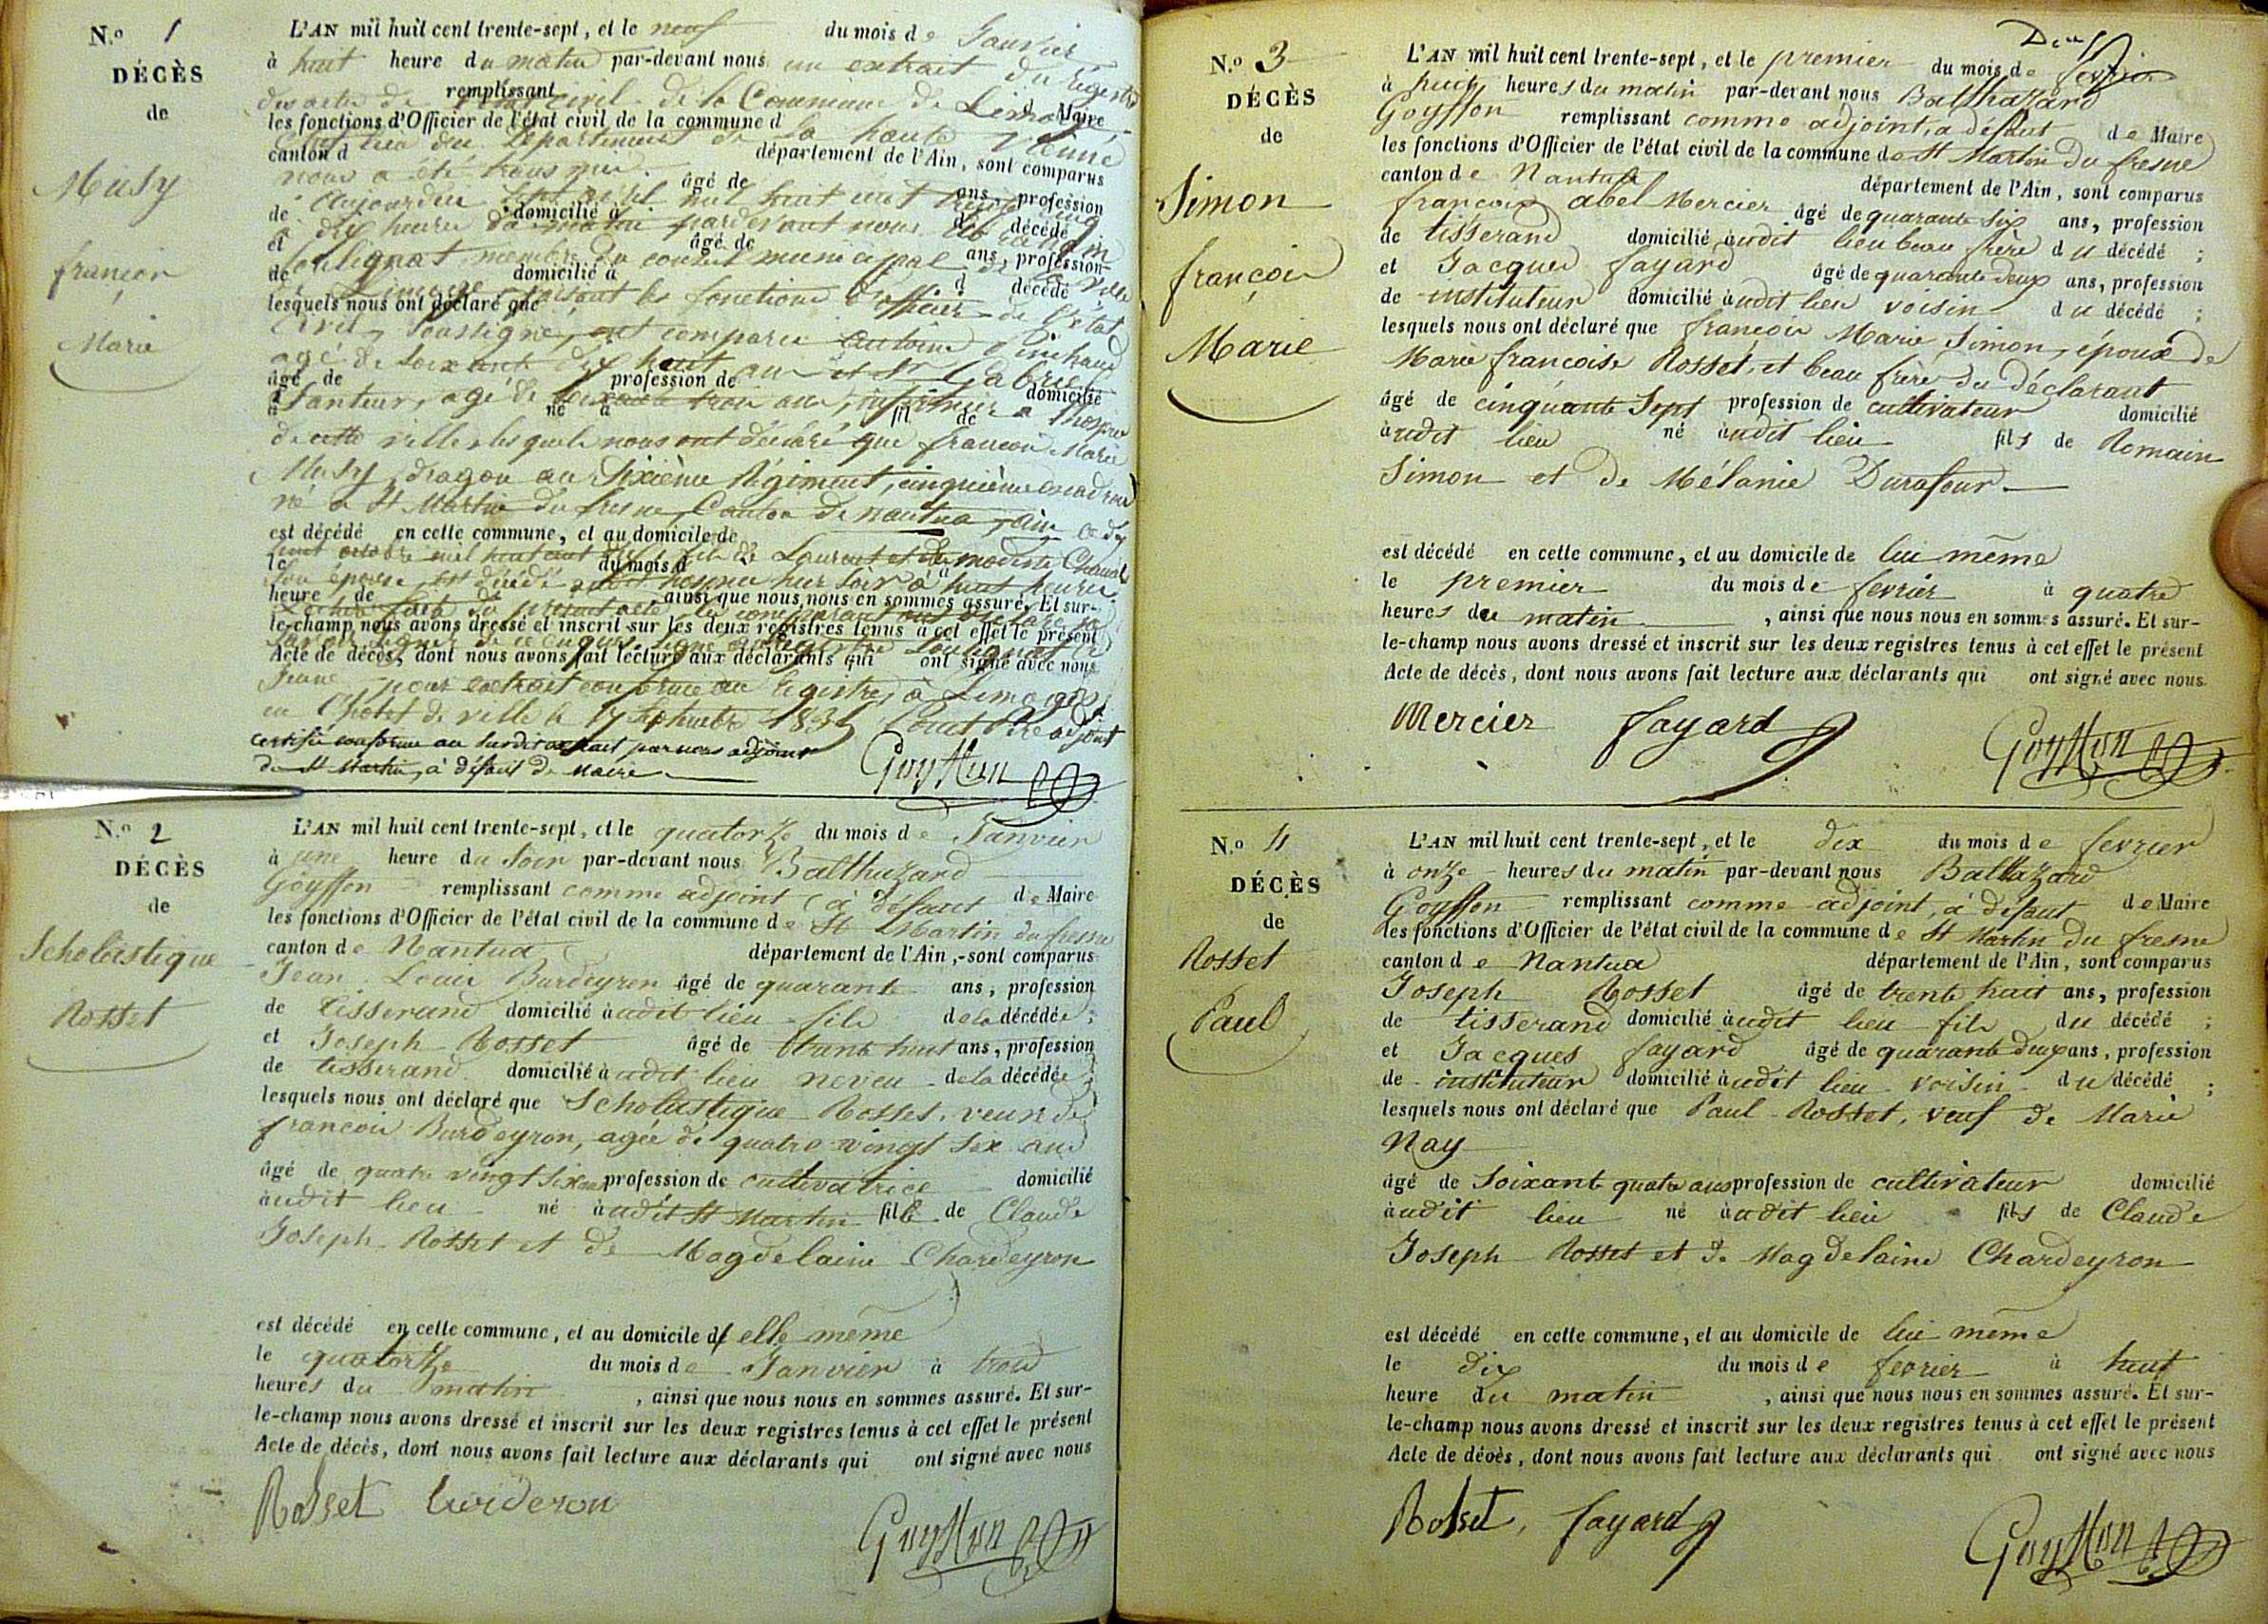 N.o 1
DÉCÈS
de
Musy
françois
Marie
L'AN mil huit cent trente-sept, et le neuf du mois de Janvier
à huit heure du matin par-devant nous un extrait du Régistre
des actes de l'état civil de la Commune de Limoges
remplissant Maire
les fonctions d'Officier de l'état civil de la commune d
du Département de la haute Vienne
canton d département de l'Ain, sont comparus
nous a été transmis.
âgé de ans, profession
Aujourdui sept avril mil huit cent trente
de domicilié à d décédé
à dix heures du matin pardevant nous
et âgé de ans, profession
Soulignat membre du conseil municipal de la ville
de domicilié à d décédé
de Limoges faisant les fonctions d'officier de l'état
lesquels nous ont déclaré que
Civil, Soussigné, ont comparu antoine
agé de soixante dix huit ans et Sr Gabriel
âgé de profession de domicilié
Santeur, agé de trois ans, infirmier à l'hospice
à né à fil de
de cette ville, les quels nous ont déclaré que francois Marie
Musy, dragon au Sixième Régiment, cinquième escadron
né à St Martin du fresne, Canton de nantua, ain
est décédé en cette commune, et au domicile de
fils de Laurent et de modeste
le du mois d à
son épouse, est décédé audit hospice hier soir à huit heures
heure de ainsi que nous nous en sommes assuré. Et sur-
le-champ nous avons dressé et inscrit sur les deux registres tenus à cet effet le présent
Acte de décès, dont nous avons fait lecture aux déclarants qui ont signé avec nous
pour extrait conforme au registre, à Limoges
en l'hotel de ville le 17 septembre
certifié conforme au susdit extrait par nous adjoint
de St Martin, à défaut de Maire
Goyffon
N.o 2
DÉCÈS
de
Scholastique
Rosset
L'AN mil huit cent trente-sept, et le quatorze du mois de Janvier
à une heure du soir par-devant nous Balthazard
Goyffon remplissant comme adjoint, à défaut de Maire
les fonctions d'Officier de l'état civil de la commune de St Martin du fresne
canton de Nantua département de l'Ain, sont comparus
Jean Louis Burdeyron âgé de quarante ans, profession
de tisserand domicilié audit lieu fils de la décédée;
et Joseph Rosset âgé de trente huit ans, profession
de tisserand domicilié audit lieu neveu de la décédée;
lesquels nous ont déclaré que Scholastique Rosset, veuve de
françois Burdeyron, agée de quatre vingt six ans
âgé de quatre vingt six ans profession de cultivatrice domicilié
audit lieu né audit St Martin fille de Claude
Joseph Rosset et de Magdelaine Chardeyron
est décédé en cette commune, et au domicile d'elle même
le quatorze du mois de Janvier à trois
heures du matin, ainsi que nous nous en sommes assuré. Et sur-
le-champ nous avons dressé et inscrit sur les deux registres tenus à cet effet le présent
Acte de décès, dont nous avons fait lecture aux déclarants qui ont signé avec nous
Rosset burderon
Goyffon
N.o 3
DÉCÈS
de
Simon
françois
Marie
L'AN mil huit cent trente-sept, et le premier du mois de fevrier
à huit heures du matin par-devant nous Balthazard
Goyffon remplissant comme adjoint, à défaut de Maire
les fonctions d'Officier de l'état civil de la commune de St Martin du fresne
canton de Nantua département de l'Ain, sont comparus
françois abel Mercier âgé de quarante six ans, profession
de tisserand domicilié audit lieu beau frère du décédé;
et Jacques fayard âgé de quarante deux ans, profession
de instituteur domicilié audit lieu voisin du décédé;
lesquels nous ont déclaré que françois Marie Simon, époux de
Marie francoise Rosset, et beau frère du déclarant
âgé de cinquante sept profession de cultivateur domicilié
audit lieu né audit lieu fils de Romain
Simon et de Mélanie Durafour
est décédé en cette commune, et au domicile de lui même
le premier du mois de fevrier à quatre
heures du matin, ainsi que nous nous en sommes assuré. Et sur-
le-champ nous avons dressé et inscrit sur les deux registres tenus à cet effet le présent
Acte de décès, dont nous avons fait lecture aux déclarants qui ont signé avec nous
Mercier fayard
Goyffon
N.o 4
DÉCÈS
de
Rosset
Paul
L'AN mil huit cent trente-sept, et le dix du mois de fevrier
à onze heures du matin par-devant nous Baltazard
Goyffon remplissant comme adjoint, à défaut de Maire
les fonctions d'Officier de l'état civil de la commune de St Martin du fresne
canton de Nantua département de l'Ain, sont comparus
Joseph Rosset âgé de trente huit ans, profession
de tisserand domicilié audit lieu fils du décédé;
et Jacques fayard âgé de quarante deux ans, profession
de instituteur domicilié audit lieu voisin du décédé;
lesquels nous ont déclaré que Paul Rosset, veuf de Marie
Nay
âgé de soixante quatre ans profession de cultivateur domicilié
audit lieu né audit lieu fils de Claude
Joseph Rosset et de Magdelaine Chardeyron
est décédé en cette commune, et au domicile de lui même
le dix du mois de fevrier à huit
heure du matin, ainsi que nous nous en sommes assuré. Et sur-
le-champ nous avons dressé et inscrit sur les deux registres tenus à cet effet le présent
Acte de décès, dont nous avons fait lecture aux déclarants qui ont signé avec nous
Rosset, fayard
Goyffon